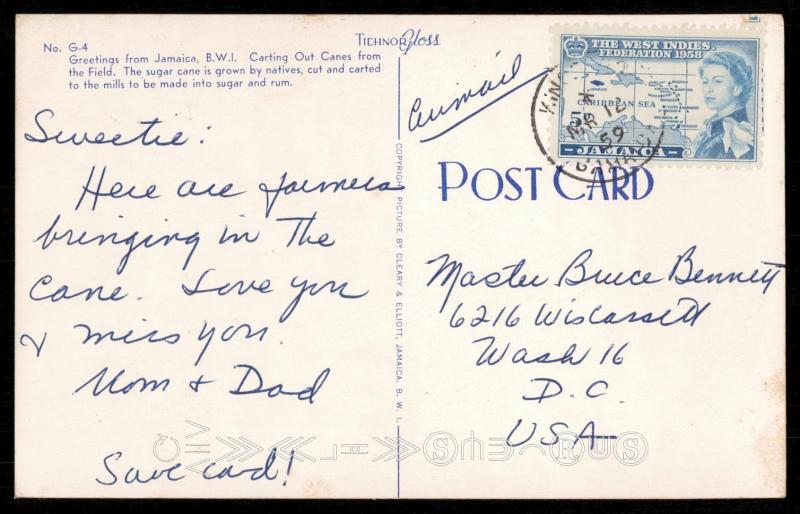 No. G-4
Greetings from Jamaica, B.W.I. Carting Out Canes from
the Field. The sugar cane is grown by natives, cut and carted
to the mills to be made into sugar and rum.
TICHNOR Gloss
Sweetie:
Here are farmers
bringing in The
Cane. Love you
& miss you.
Mom + Dad
Save card!
COPYRIGHT PICTURE BY CLEARY & ELLIOTT, JAMAICA. B. W. I.
Airmail
THE WEST INDIES
FEDERATION 1958
CARIBBEAN SEA
JAMAICA
MR 12
59
POST CARD
Master Bruce Bennett
6216 Wiscassett
Wash 16
D.C.
USA